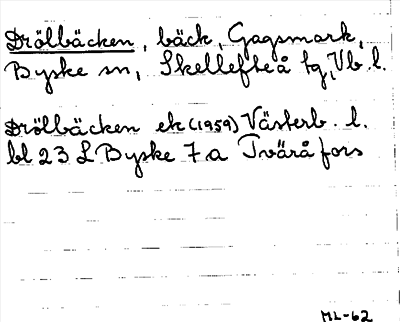 Drölbäcken, bäck, Gagsmark,
Byske sn, Skellefteå tg, Vb. l.
Drölbäcken ek (1959) Västerb. l.
bl 23 L Byske 7a Tvärå fors
ML-62